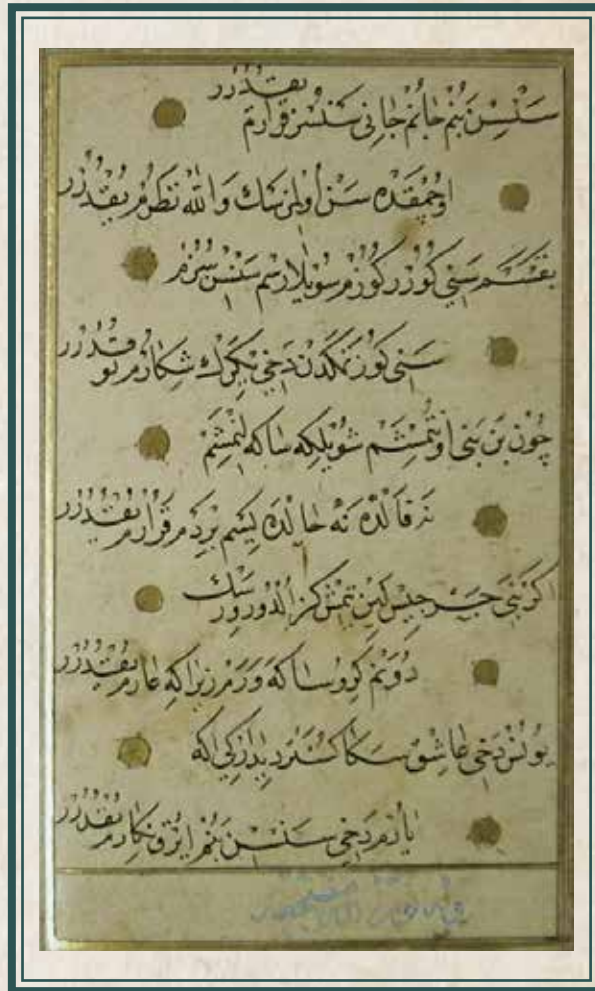 سَنْسِنْ بَنُمْ جَانُمْ جَانِى سَنْسُزْ قَرَارُمْ يُقْدُرُرْ
اوُچْمَقْدَه سَنْ اُولْمَزْسَڭْ وَاللّٰه نَظَرُمْ يُقْدُرُرْ
بَقْسَمْ سَنِى كُورُرْ كُوزُمْ سُويْلَارْسَمْ سَنْسِنْ سُزُمْ
سَنِى كُوزَتْمَكْدَنْ دَخِى يِكْرَكْ شِكَارُمْ يُوقْدُرُرْ
چُونْ بَنْ بَنِى اُونُتْمِشَمْ شُويْلَكِه سَاكَه كِتْمِشَمْ
نَه قَالْدَه نَه حَالْدَه يِسَمْ بِرْدَمْ قَرَارُمْ يُقْدُرُرْ
اكَرْ بَنِى جِرْجِيسْ لَيِنْ يِتْمِشْ كَزْ اُلْدُورُرْسَڭْ
دُونَمْ كِرُو سَاكَه وَرَمْ زِيرَاكِه عَارُمْ يُقْدُرُرْ
يُونُسْ دَخِى عَاشِقْ سَكَا كُسْتَرْ دِيدَارِڭِى اَكَه
يَارُمْ دَخِى سَنْسِنْ بَنُمْ اَيْرُقْ نِكَارُمْ يُقْدُرُرْ